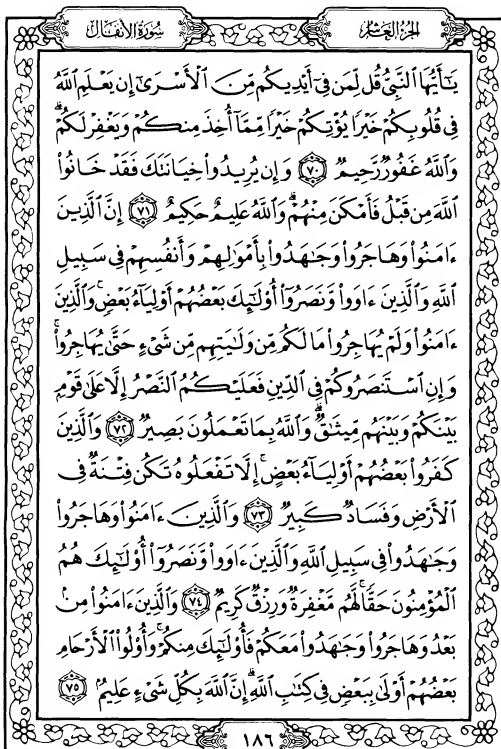 سُورَةُ الأَنْفَال
الجُزْءُ العَاشِر
يَـٰٓأَيُّهَا ٱلنَّبِىُّ قُل لِّمَن فِىٓ أَيْدِيكُم مِّنَ ٱلْأَسْرَىٰٓ إِن يَعْلَمِ ٱللَّهُ
فِى قُلُوبِكُمْ خَيْرًا يُؤْتِكُمْ خَيْرًا مِّمَّآ أُخِذَ مِنكُمْ وَيَغْفِرْ لَكُمْ ۗ
وَٱللَّهُ غَفُورٌ رَّحِيمٌ ٧٠ وَإِن يُرِيدُوا۟ خِيَانَتَكَ فَقَدْ خَانُوا۟
ٱللَّهَ مِن قَبْلُ فَأَمْكَنَ مِنْهُمْ ۗ وَٱللَّهُ عَلِيمٌ حَكِيمٌ ٧١ إِنَّ ٱلَّذِينَ
ءَامَنُوا۟ وَهَاجَرُوا۟ وَجَـٰهَدُوا۟ بِأَمْوَٰلِهِمْ وَأَنفُسِهِمْ فِى سَبِيلِ
ٱللَّهِ وَٱلَّذِينَ ءَاوَوا۟ وَّنَصَرُوٓا۟ أُو۟لَـٰٓئِكَ بَعْضُهُمْ أَوْلِيَآءُ بَعْضٍ ۚ وَٱلَّذِينَ
ءَامَنُوا۟ وَلَمْ يُهَاجِرُوا۟ مَا لَكُم مِّن وَلَـٰيَتِهِم مِّن شَىْءٍ حَتَّىٰ يُهَاجِرُوا۟ ۚ
وَإِنِ ٱسْتَنصَرُوكُمْ فِى ٱلدِّينِ فَعَلَيْكُمُ ٱلنَّصْرُ إِلَّا عَلَىٰ قَوْمٍۭ
بَيْنَكُمْ وَبَيْنَهُم مِّيثَـٰقٌ ۗ وَٱللَّهُ بِمَا تَعْمَلُونَ بَصِيرٌ ٧٢ وَٱلَّذِينَ
كَفَرُوا۟ بَعْضُهُمْ أَوْلِيَآءُ بَعْضٍ ۚ إِلَّا تَفْعَلُوهُ تَكُن فِتْنَةٌ فِى
ٱلْأَرْضِ وَفَسَادٌ كَبِيرٌ ٧٣ وَٱلَّذِينَ ءَامَنُوا۟ وَهَاجَرُوا۟
وَجَـٰهَدُوا۟ فِى سَبِيلِ ٱللَّهِ وَٱلَّذِينَ ءَاوَوا۟ وَّنَصَرُوٓا۟ أُو۟لَـٰٓئِكَ هُمُ
ٱلْمُؤْمِنُونَ حَقًّا ۚ لَّهُم مَّغْفِرَةٌ وَرِزْقٌ كَرِيمٌ ٧٤ وَٱلَّذِينَ ءَامَنُوا۟ مِنۢ
بَعْدُ وَهَاجَرُوا۟ وَجَـٰهَدُوا۟ مَعَكُمْ فَأُو۟لَـٰٓئِكَ مِنكُمْ ۚ وَأُو۟لُوا۟ ٱلْأَرْحَامِ
بَعْضُهُمْ أَوْلَىٰ بِبَعْضٍ فِى كِتَـٰبِ ٱللَّهِ ۗ إِنَّ ٱللَّهَ بِكُلِّ شَىْءٍ عَلِيمٌۢ ٧٥
١٨٦